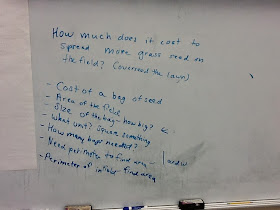 How much does it cost to
spread more grass seed on
the field? (Overseed the lawn)
- Cost of a bag of seed
- Area of the field
- Size of the bag - how big?
- What unit? Square something
- How many bags needed?
- Need perimeter to find area -
- Perimeter of infield - find area